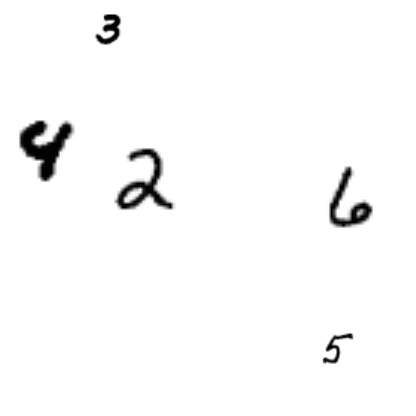 3
4 2 6
5